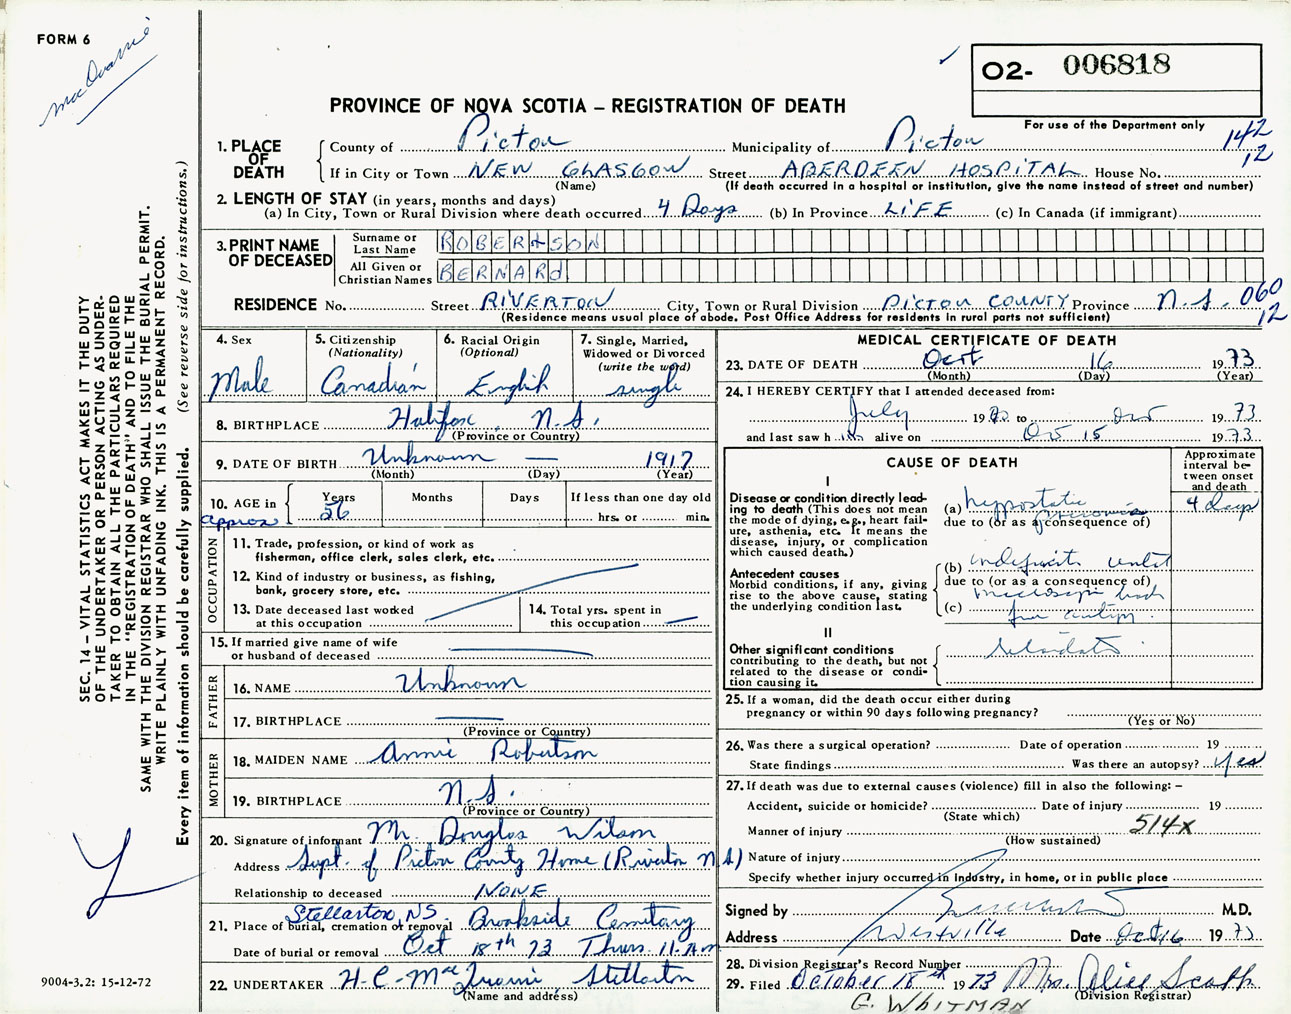 FORM 6
O2- 006818
PROVINCE OF NOVA SCOTIA – REGISTRATION OF DEATH
For use of the Department only
142
12
1. PLACE OF DEATH
County of Pictou Municipality of Pictou
If in City or Town NEW GLASGOW Street ABERDEEN HOSPITAL House No.
(Name) (If death occurred in a hospital or institution, give the name instead of street and number)
2. LENGTH OF STAY (in years, months and days)
(a) In City, Town or Rural Division where death occurred 4 Days (b) In Province LIFE (c) In Canada (if immigrant)
3. PRINT NAME OF DECEASED
Surname or Last Name ROBERTSON
All Given or Christian Names BERNARd
RESIDENCE No. Street RIVERTON City, Town or Rural Division PICTOU COUNTY Province N.S. 060
12
(Residence means usual place of abode. Post Office Address for residents in rural parts not sufficient)
4. Sex
Male
5. Citizenship
(Nationality)
Canadian
6. Racial Origin
(Optional)
English
7. Single, Married,
Widowed or Divorced
(write the word)
single
8. BIRTHPLACE Halifax, N.S.
(Province or Country)
9. DATE OF BIRTH Unknown — 1917
(Month) (Day) (Year)
10. AGE in
approx
Years Months Days If less than one day old
56 hrs. or min.
OCCUPATION
11. Trade, profession, or kind of work as
fisherman, office clerk, sales clerk, etc.
12. Kind of industry or business, as fishing,
bank, grocery store, etc.
13. Date deceased last worked
at this occupation
14. Total yrs. spent in
this occupation
15. If married give name of wife
or husband of deceased
FATHER
16. NAME Unknown
17. BIRTHPLACE
(Province or Country)
MOTHER
18. MAIDEN NAME Annie Robertson
19. BIRTHPLACE N.S.
(Province or Country)
20. Signature of informant Mr. Douglas Wilson
Address Supt. of Pictou County Home (Riverton N.S.)
Relationship to deceased NONE
Stellarton, NS.
21. Place of burial, cremation or removal Brookside Cemetary
Date of burial or removal Oct 18th 73 Thurs. 11-A.M
22. UNDERTAKER H-C-Mac Stellarton
(Name and address)
MEDICAL CERTIFICATE OF DEATH
23. DATE OF DEATH Oct 16 1973
(Month) (Day) (Year)
24. I HEREBY CERTIFY that I attended deceased from:
July 19 to Oct 1973
and last saw him alive on Oct 15 1973
CAUSE OF DEATH
Approximate
interval be-
tween onset
and death
I
Disease or condition directly lead-
ing to death (This does not mean
the mode of dying, e.g., heart fail-
ure, asthenia, etc. It means the
disease, injury, or complication
which caused death.)
(a) hypostatic pneumonia 4 days
due to (or as a consequence of)
Antecedent causes
Morbid conditions, if any, giving
rise to the above cause, stating
the underlying condition last.
(b)
due to (or as a consequence of)
(c)
II
Other significant conditions
contributing to the death, but not
related to the disease or condi-
tion causing it.
25. If a woman, did the death occur either during
pregnancy or within 90 days following pregnancy?
(Yes or No)
26. Was there a surgical operation? Date of operation 19
State findings Was there an autopsy? Yes
27. If death was due to external causes (violence) fill in also the following: –
Accident, suicide or homicide? Date of injury 19
(State which)
Manner of injury 514x
(How sustained)
Nature of injury
Specify whether injury occurred in industry, in home, or in public place
Signed by M.D.
Address Westville Date Oct 16 1973
28. Division Registrar's Record Number
29. Filed October 18th 1973 Mrs. Alice Scott
(Division Registrar)
G. WHITMAN
SEC. 14 – VITAL STATISTICS ACT MAKES IT THE DUTY
OF THE UNDERTAKER OR PERSON ACTING AS UNDER-
TAKER TO OBTAIN ALL THE PARTICULARS REQUIRED
IN THE "REGISTRATION OF DEATH" AND TO FILE THE
SAME WITH THE DIVISION REGISTRAR WHO SHALL ISSUE THE BURIAL PERMIT.
WRITE PLAINLY WITH UNFADING INK. THIS IS A PERMANENT RECORD.
Every item of information should be carefully supplied. (See reverse side for instructions.)
9004-3.2: 15-12-72